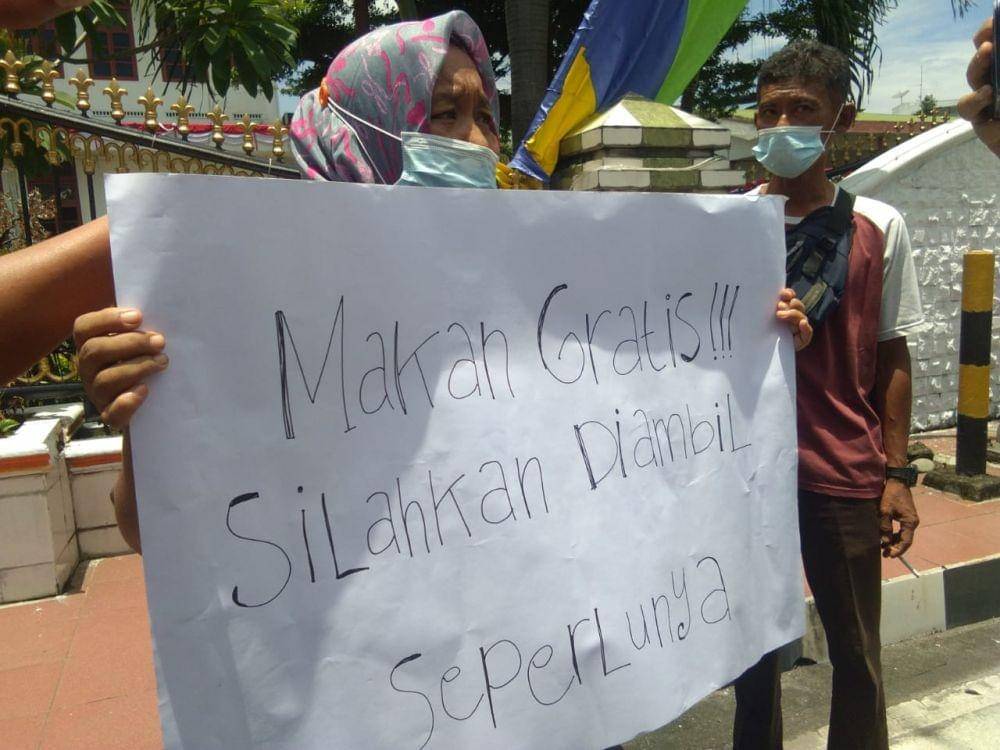 Makan Gratis!!!
Silahkan Diambil
Seperlunya